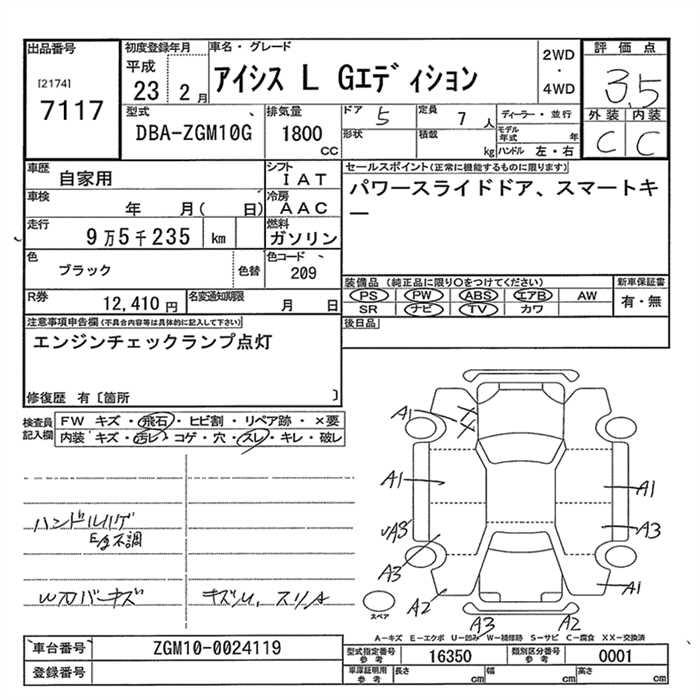 出品番号
[2174]
7117
初度登録年月
平成
23 2 月
車名・グレード
アイシス L Gエディション
2WD
・
4WD
評価点
3.5
外装 内装
C C
型式
DBA-ZGM10G
排気量
1800
CC
ドア 5
定員 7 人
形状
積載 kg
ディーラー・並行
モデル年式 年
ハンドル 左・右
車歴
自家用
シフト
IAT
車検
年 月( 日)
冷房
AAC
走行
9万5千235 km
燃料
ガソリン
色
ブラック
色替
色コード
209
R券
12,410 円
名変通知期限
月 日
セールスポイント(正常に機能するものに限ります)
パワースライドドア、スマートキ
ー
装備品 (純正品に限り○をつけてください)
PS PW ABS エアB AW
SR ナビ TV カワ
新車保証書
有・無
後日品
注意事項申告欄(不具合内容等は具体的に記入して下さい)
エンジンチェックランプ点灯
修復歴 有〔箇所 〕
検査員
記入欄
FW キズ・飛石・ヒビ割・リペア跡・×要
内装 キズ・汚レ・コゲ・穴・スレ・キレ・破レ
ハンドルハゲ
不調
バーキズ
A1
A1
A1
A3
A3
A3
A1
A2
A3
A2
スペア
A―キズ E―エクボ U―凹み W―補修跡 S―サビ C―腐食 XX―交換済
車台番号
ZGM10-0024119
登録番号
型式指定番号
参考
16350
類別区分番号
参考
0001
車庫証明用
参考
長さ cm
幅 cm
高さ cm